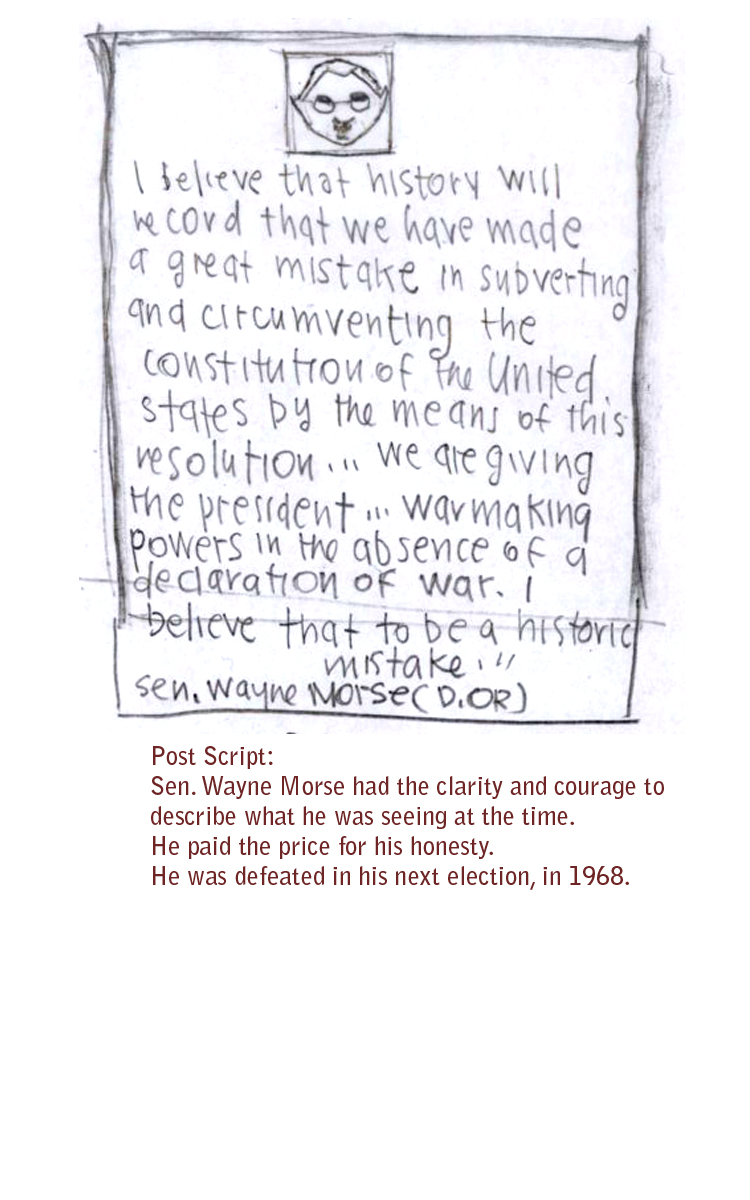 I believe that history will
record that we have made
a great mistake in subverting
and circumventing the
constitution of the United
states by the means of this
resolution... we are giving
the president... warmaking
powers in the absence of a
declaration of war. I
believe that to be a historic
mistake."
sen. Wayne Morse (D.OR)
Post Script:
Sen. Wayne Morse had the clarity and courage to
describe what he was seeing at the time.
He paid the price for his honesty.
He was defeated in his next election, in 1968.